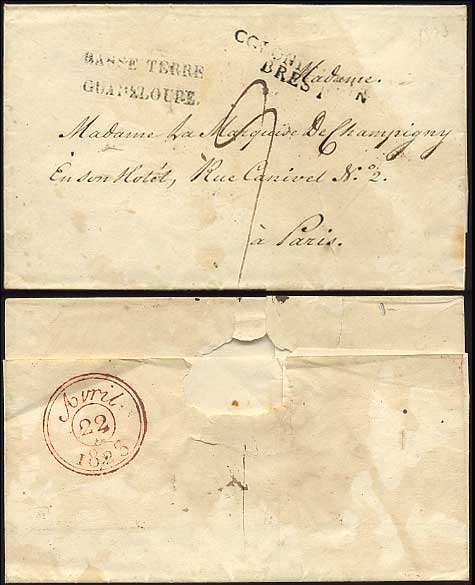 BASSE TERRE
GUADELOUPE.
COLONI
BREST N
Madame.
Madame La Marquise De Champigny
En son Hôtel, Rue Canivel N.º 2.
à Paris.
Avril
22
1823